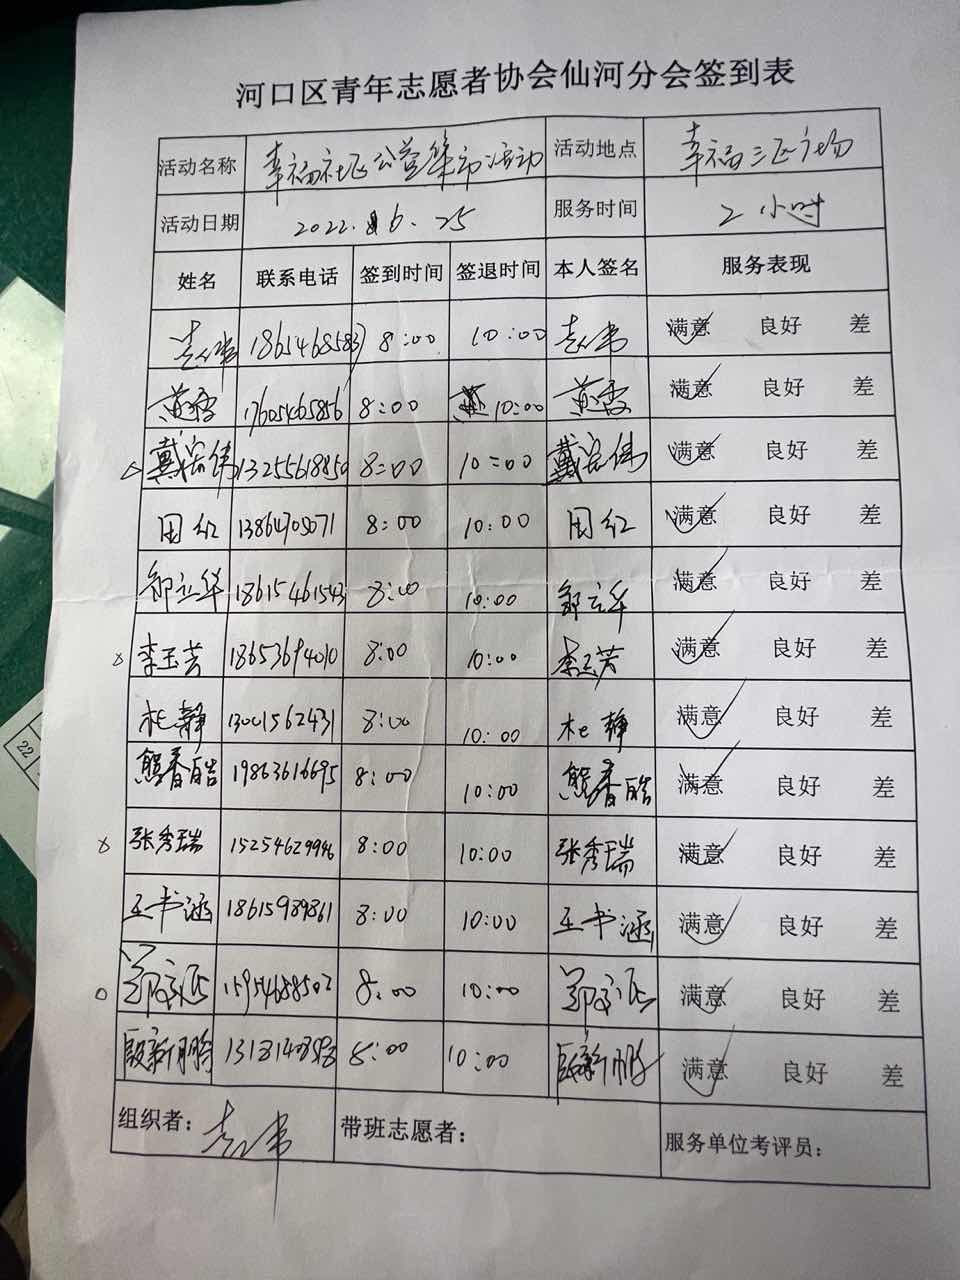 河口区青年志愿者协会仙河分会签到表
活动名称 幸福社区公益集市活动 活动地点 幸福三区广场
活动日期 2022.6.25 服务时间 2小时
姓名 联系电话 签到时间 签退时间 本人签名 服务表现
18654685837 8:00 10:00 满意 良好 差
黄霞 17605465856 8:00 10:00 黄霞 满意 良好 差
戴宏伟 13255618850 8:00 10:00 戴宏伟 满意 良好 差
田红 13864705071 8:00 10:00 田红 满意 良好 差
邹立华 18615461543 8:00 10:00 邹立华 满意 良好 差
李玉芳 18653694010 8:00 10:00 李玉芳 满意 良好 差
杜静 13001562431 8:00 10:00 杜静 满意 良好 差
熊春皓 19863616695 8:00 10:00 熊春皓 满意 良好 差
张秀瑞 15254629946 8:00 10:00 张秀瑞 满意 良好 差
王书涵 18615989861 8:00 10:00 王书涵 满意 良好 差
15954658502 8:00 10:00 满意 良好 差
殷新鹏 8:00 10:00 殷新鹏 满意 良好 差
组织者: 带班志愿者: 服务单位考评员:
22